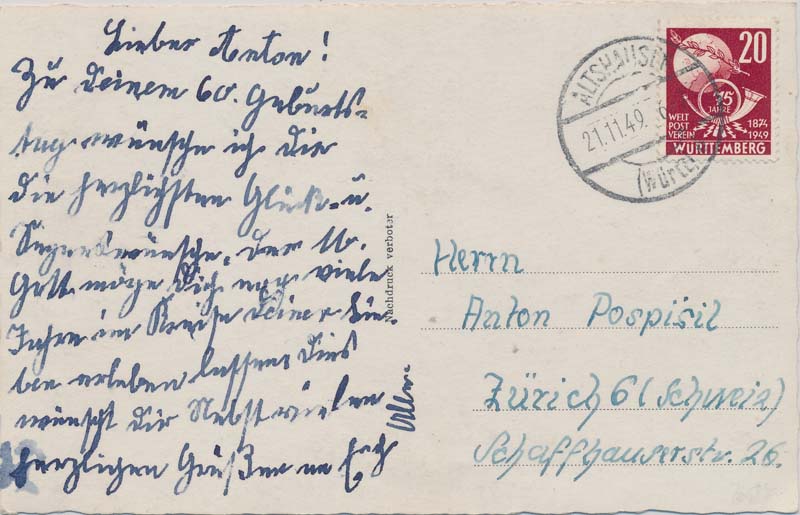 Lieber Anton!
Zu Deinem 60. Geburts-
tag wünsche ich dir
die herzlichsten Glück- u.
Segenswünsche. Der lb.
Gott möge Dich noch viele
Jahre im Kreise Deiner Lie-
ben erleben lassen, dies
wünscht dir Nebst vielen
herzligen Grüßen an Euch
Allen
Nachdruck verboten
ALTSHAUSEN
21.11.49
(Württ)
20
75
JAHRE
WELT
POST
VEREIN
1874
1949
WÜRTTEMBERG
Herrn
Anton Pospišil
Zürich 6 (Schweiz)
Schaffhauserstr. 26.